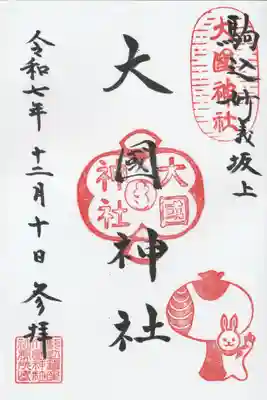 駒込妙義坂上
大國神社
大國神社
大國神社
令和七年十二月十日参拝